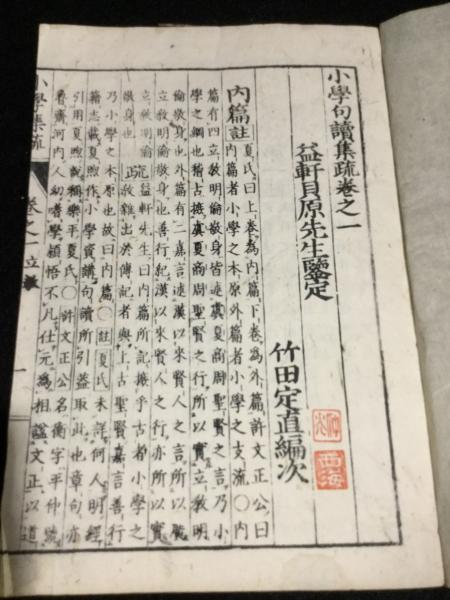 小學句讀集疏卷之一
益軒貝原先生鑒定
竹田定直編次
內篇 註 夏氏曰上卷為內篇下卷為外篇許文正公曰
內篇者小學之本原外篇者小學之支流○內
篇有四立敎明倫敬身皆述虞夏商周聖賢之言乃小
學之綱也稽古摭虞夏商周聖賢之行所以實立敎明
倫敬身也外篇有二嘉言述漢以來賢人之言所以廣
立敎明倫敬身也善行紀漢以來賢人之行亦所以實
立敎明倫敬身也 疏 益軒先生曰內篇所記摭乎古者小學之
敎雜出於傳記者與上古聖賢嘉言善行
乃小學之本原也故曰內篇○註夏氏未詳何人明經
籍志載夏煦作小學資講句讀所引益取此也章句亦
引用夏煦說稱樂平夏氏○許文正公名衡字平仲號
魯齋河內人幼嗜學穎悟不凡仕元為相謚文正以道
小學集疏
卷之一 立敎
一
西海